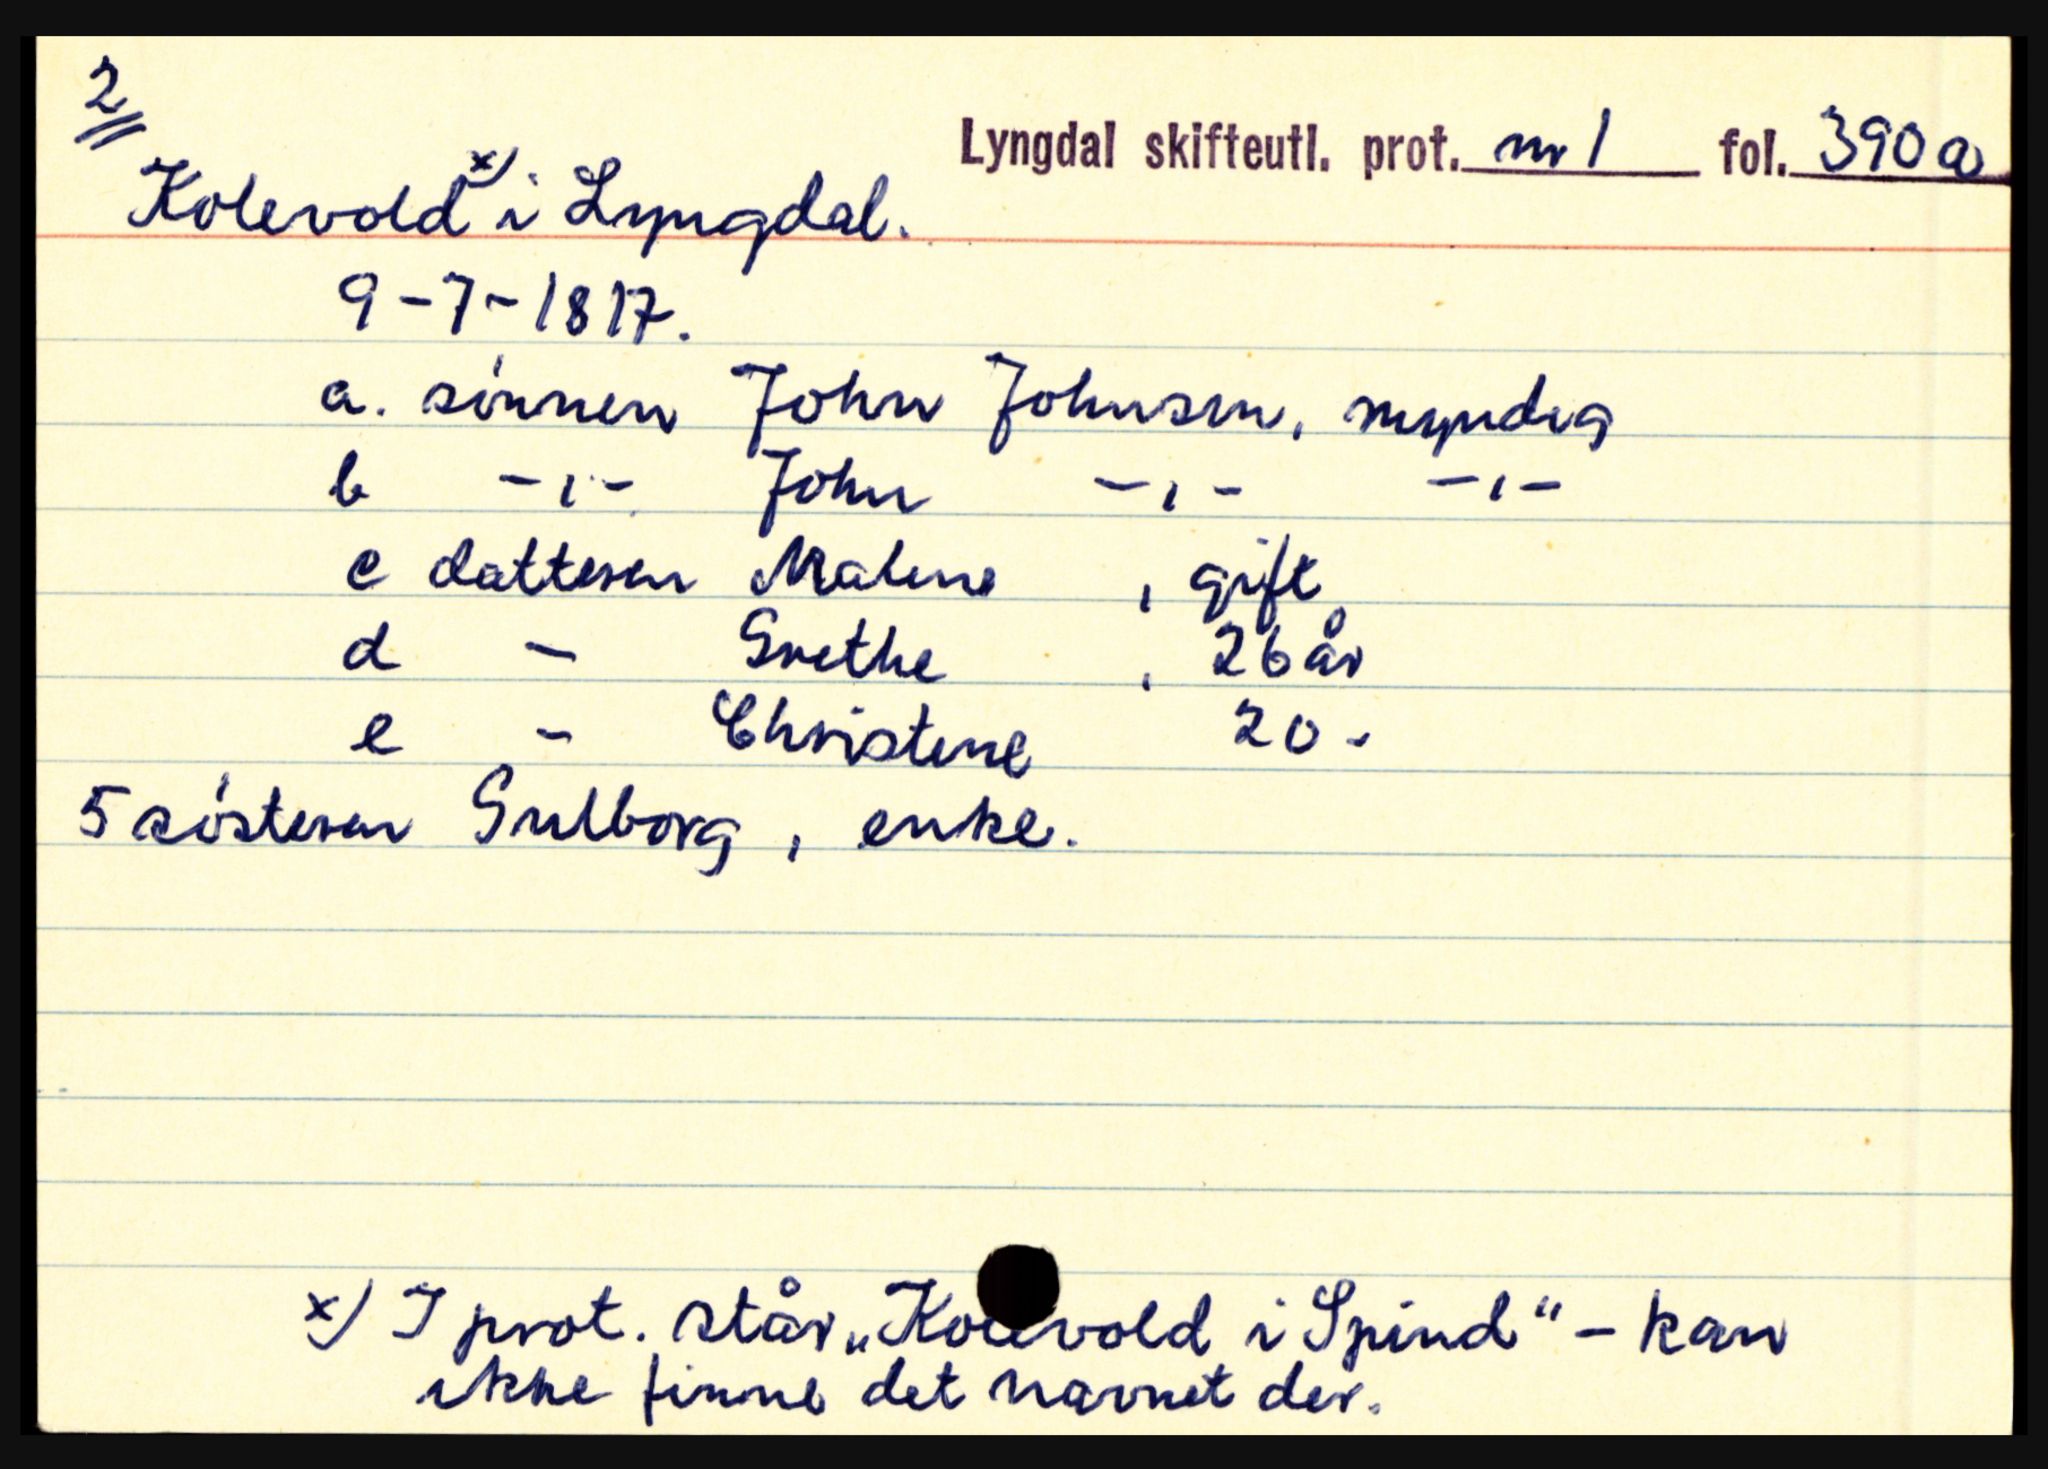 2
Lyngdal skifteutl. prot. nr 1 fol. 390a
Kolevold x) i Lyngdal.
9-7-1817.
a. sönnen John Johnsen, myndig
b -"- John -"- -"-
c datteren Malene , gift
d - Grethe , 26 år
e - Christene 20 -
5 søsteren Gulborg, enke.
x) I prot. står „Kolevold i Spind" - kan
ikke finne det navnet der.